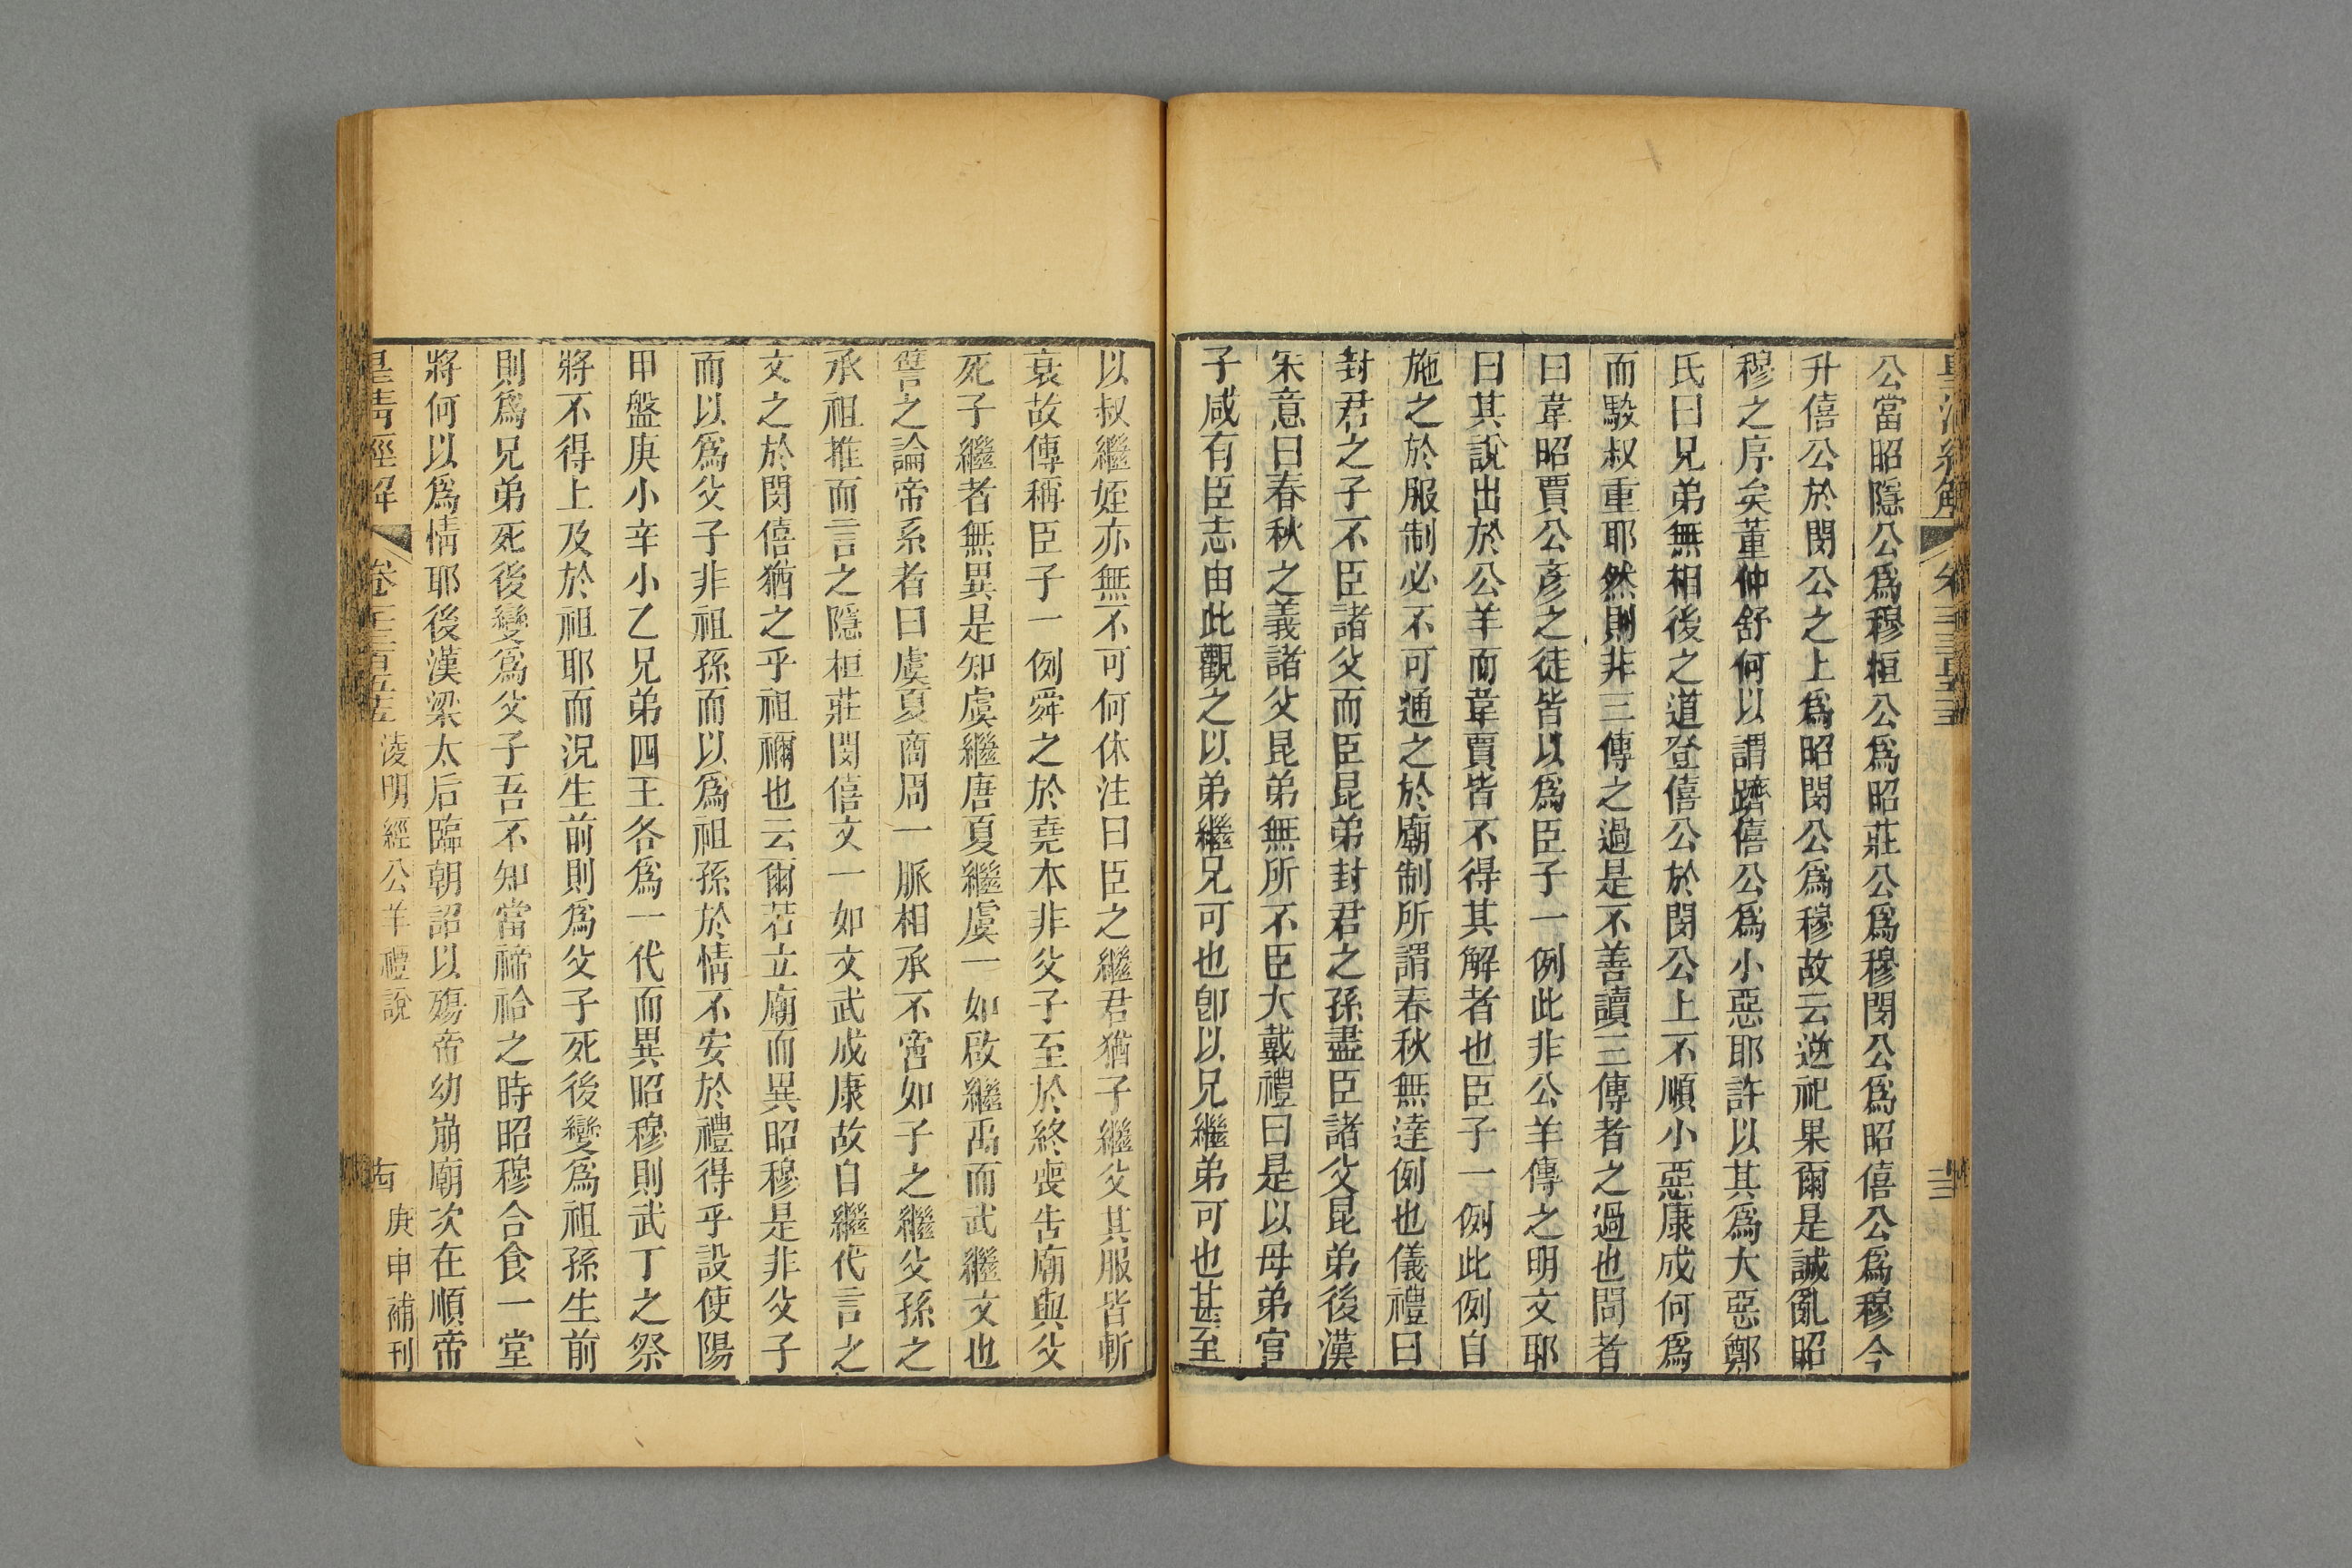 公當昭隱公爲穆桓公爲昭莊公爲穆閔公爲昭僖公爲穆今
升僖公於閔公之上爲昭閔公爲穆故云逆祀果爾是誠亂昭
穆之序矣董仲舒何以謂躋僖公爲小惡耶許以其爲大惡鄭
氏曰兄弟無相後之道登僖公於閔公上不順小惡康成何爲
而駁叔重耶然則非三傳之過是不善讀三傳者之過也問者
曰韋昭賈公彥之徒皆以爲臣子一例此非公羊傳之明文耶
曰其說出於公羊而韋賈皆不得其解者也臣子一例此例自
施之於服制必不可通之於廟制所謂春秋無達例也儀禮曰
封君之子不臣諸父而臣昆弟封君之孫盡臣諸父昆弟後漢
朱意曰春秋之義諸父昆弟無所不臣大戴禮曰是以母弟官
子咸有臣志由此觀之以弟繼兄可也卽以兄繼弟可也甚至
以叔繼姪亦無不可何休注曰臣之繼君猶子繼父其服皆斬
衰故傳稱臣子一例舜之於堯本非父子至於終喪告廟與父
死子繼者無異是知虞繼唐夏繼虞一如啟繼禹而武繼文也
譬之論帝系者曰虞夏商周一脈相承不啻如子之繼父孫之
承祖推而言之隱桓莊閔僖文一如文武成康故自繼代言之
文之於閔僖猶之乎祖禰也云爾若立廟而異昭穆是非父子
而以爲父子非祖孫而以爲祖孫於情不安於禮得乎設使陽
甲盤庚小辛小乙兄弟四王各爲一代而異昭穆則武丁之祭
將不得上及於祖耶而況生前則爲父子死後變爲祖孫生前
則爲兄弟死後變爲父子吾不知當禘祫之時昭穆合食一堂
將何以爲情耶後漢梁太后臨朝詔以殤帝幼崩廟次在順帝
皇清經解 卷 凌明經公羊禮說 庚申補刊